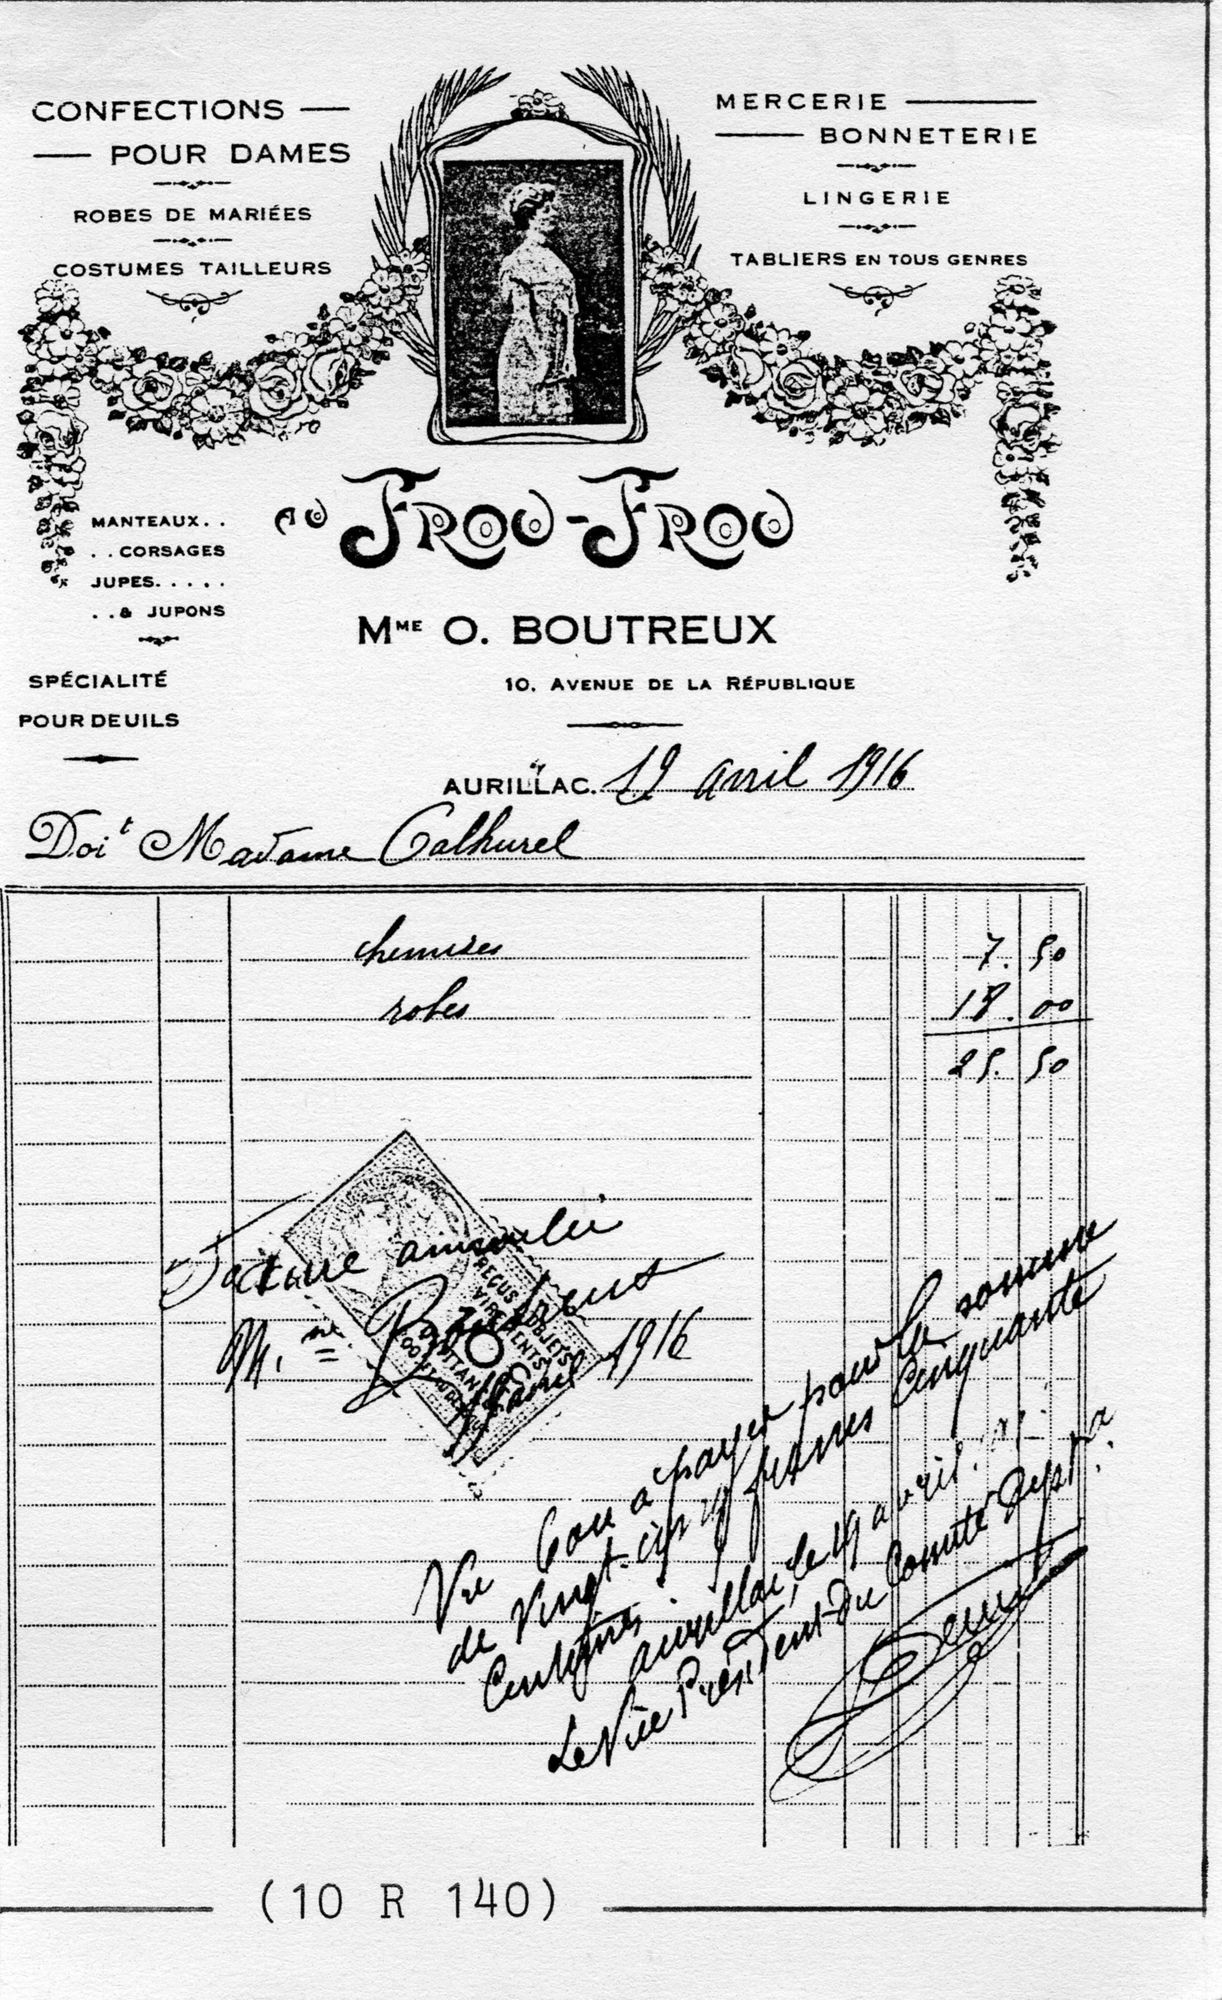 CONFECTIONS
POUR DAMES
ROBES DE MARIÉES
COSTUMES TAILLEURS
MERCERIE
BONNETERIE
LINGERIE
TABLIERS EN TOUS GENRES
MANTEAUX. .
. . CORSAGES
JUPES. . . . .
. . & JUPONS
SPÉCIALITÉ
POUR DEUILS
AU FROU-FROU
MME O. BOUTREUX
10, AVENUE DE LA RÉPUBLIQUE
AURILLAC. 19 avril 1916
Doit Madame Calhurel
chemises 7.50
robes 18.00
25.50
Facture
Mme Boutreux
avril 1916
REÇUS OBJETS
Vu bon à payer pour la somme
de vingt-cinq francs cinquante
Centimes.
Aurillac, le 19 avril
Le Vice Président du Comité Dept
(10 R 140)